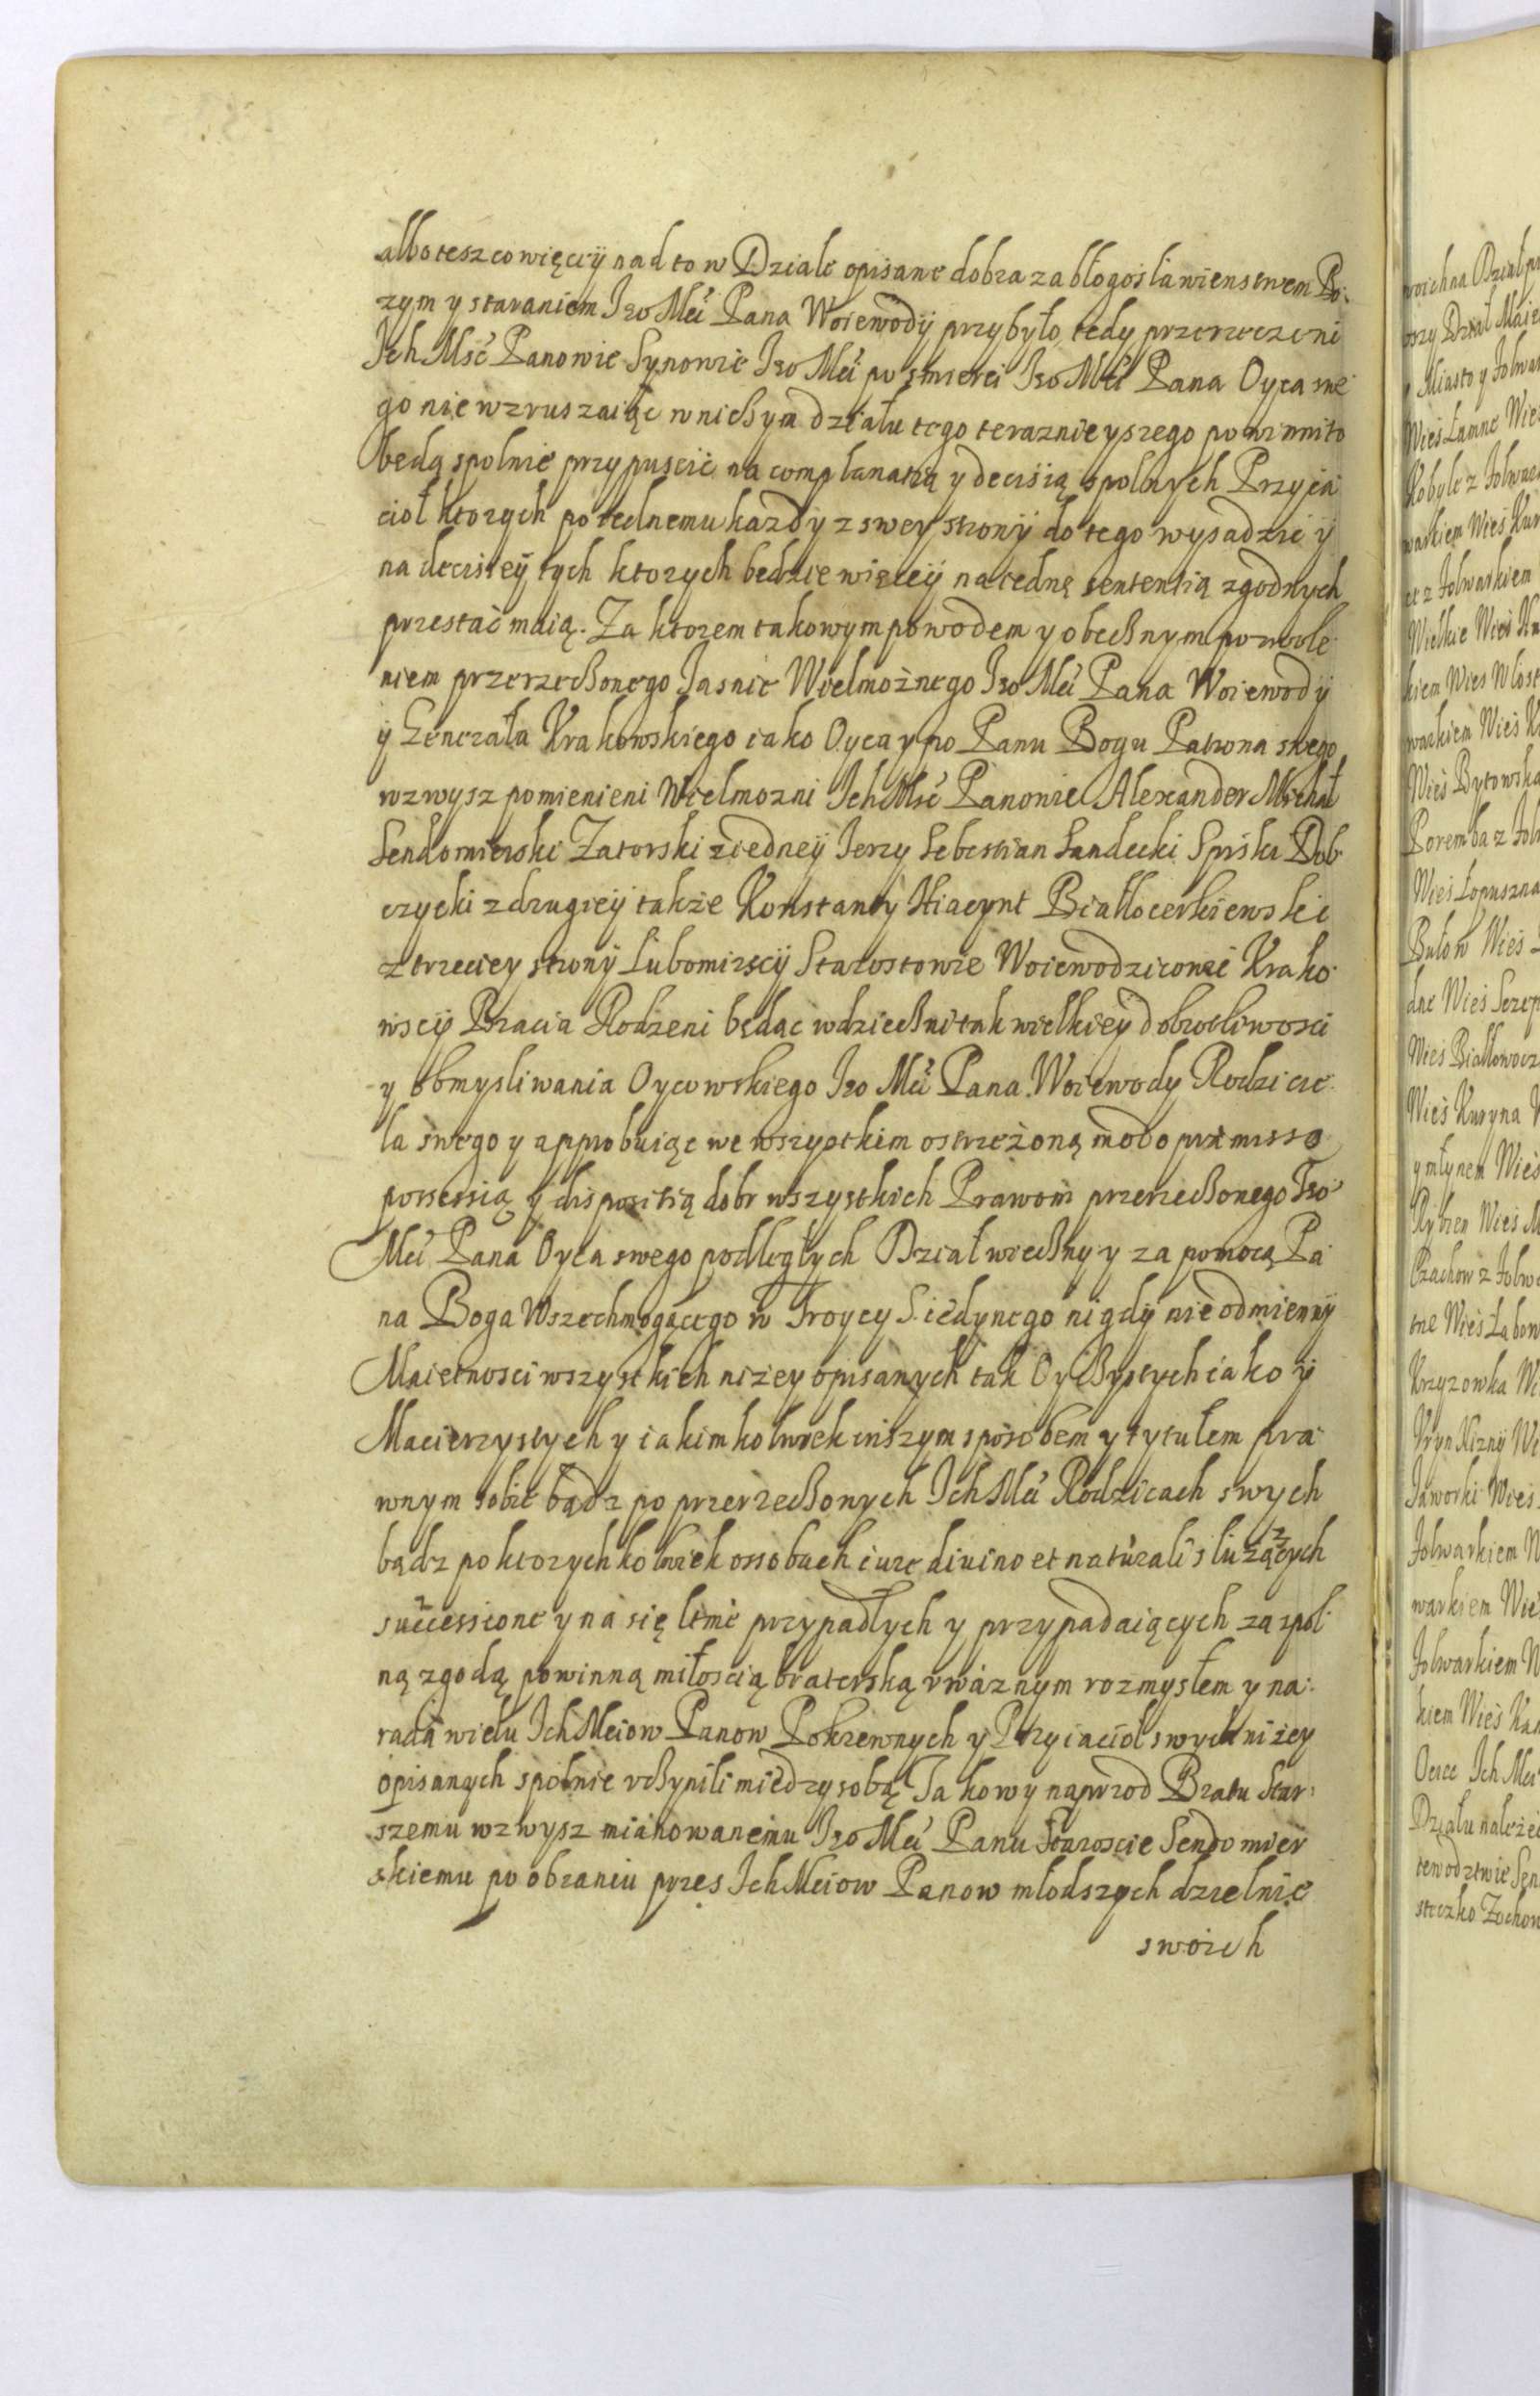 albo tesz co więcÿ nad to w Dziale opisane dobra za błogosławienstwem Bo:
zym y staraniem Jeo Mći Pana Woiewodÿ przybyło, tedy przerzeczeni
Ich Mść Panowie Synowie Jeo Mći po smierci Jeo Mći Pana Oyca swe
go nie wzruszaiąc w niczym działu tego teraznieyszego powinni to
będą spolnie przypuscic na complanatią y decisią spolnych Przyia
ciol ktorych po iednemu kazdy z swey stronÿ do tego wysadzić ÿ
na decisiey tych ktorych będzie więceÿ na iednę sententią zgodnych
przestać maią. Za ktorem takowym powodem y obecznym pozwole
niem przerzeczonego Jasnie Wielmożnego Jeo Mći Pana Woiewodÿ
ÿ Generała Krakowskiego iako Oyca y po Panu Bogu Patrona swego
wzwysz pomienieni Wielmozni Ich Mść Panowie Alexander Michał
Sendomierski Zatorski z iedneÿ Jerzy Sebestian Sandecki Spiski Dob
czycki z drugieÿ także Konstanty Hiacynt Białłocerkiewski
z trzeciey stronÿ Lubomirscÿ Starostowie Woiewodzicowie Krako
wscÿ Bracia Rodzeni będąc wdzieczni tak wielkieÿ dobrotliwosci
y obmysliwania Oycowskiego Jeo Mći Pana Woiewody Rodzicie
la swego y approbuiąc we wszystkim ostrzeżoną modo præmisso
possessią y dispositią dobr wszystkich Prawom przerzeczonego Jeo
Mći Pana Oyca swego podległych Dział wieczny y za pomocą Pa
na Boga Wszechmogącego w Troycy S. iedynego nigdÿ nieodmiennÿ
Maiętnosci wszystkich nizey opisanych tak Oyczystych iako ÿ
Macierzystych y iakimkolwiek inszym sposobem y tytułem pra
wnym sobie bądz po przerzeczonych Ich Mći Rodzicach swych
bądz po ktorychkolwiek ossobach iure divino et naturali służących
successione y na się letnie przypadłych y przypadaiących za spol
ną zgodą powinną miłoscią braterską vważnym rozmysłem y na:
radą wielu Ich Mciow Panow Pokrewnych y Przyiaciol swych niżey
opisanych spolnie vczynili miedzy sobą Takowy naprzod Bratu Star:
szemu wzwysz mianowanemu Jeo Mći Panu Staroscie Sendomier
skiemu po obraniu przes Ich Mciow Panow mlodszych dzielnic
swoich